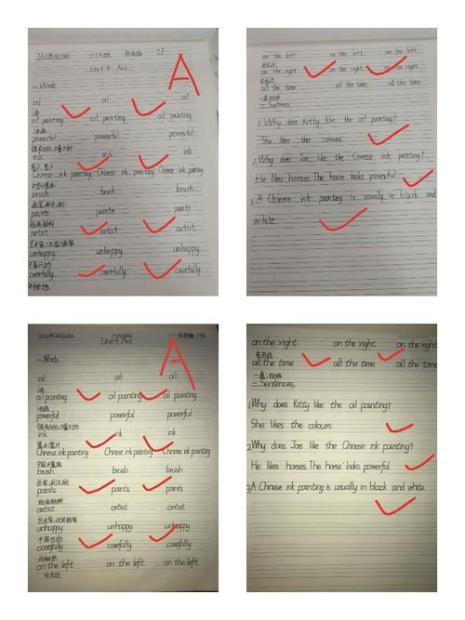 Unit 4 Art
A
一. Words
oil oil oil
oil painting oil painting oil painting
油画
powerful powerful powerful
ink ink ink
Chinese ink painting Chinese ink painting Chinese ink painting
brush brush brush
paints paints paints
artist artist artist
unhappy unhappy unhappy
不高兴的
carefully carefully carefully
on the left on the left on the left
on the right on the right on the right
all the time all the time all the time
二. Sentences
1. Why does Kitty like the oil painting?
She likes the colours.
2. Why does Joe like the Chinese ink painting?
He likes horses. The horse looks powerful.
3. A Chinese ink painting is usually in black and
white.
Unit 4 Art
A
一. Words
oil oil oil
oil painting oil painting oil painting
油画
powerful powerful powerful
ink ink ink
Chinese ink painting Chinese ink painting Chinese ink painting
brush brush brush
paints paints paints
artist artist artist
unhappy unhappy unhappy
不高兴的
carefully carefully carefully
on the left on the left on the left
on the right on the right on the right
all the time all the time all the time
二. Sentences
1. Why does Kitty like the oil painting?
She likes the colours.
2. Why does Joe like the Chinese ink painting?
He likes horses. The horse looks powerful.
3. A Chinese ink painting is usually in black and white.